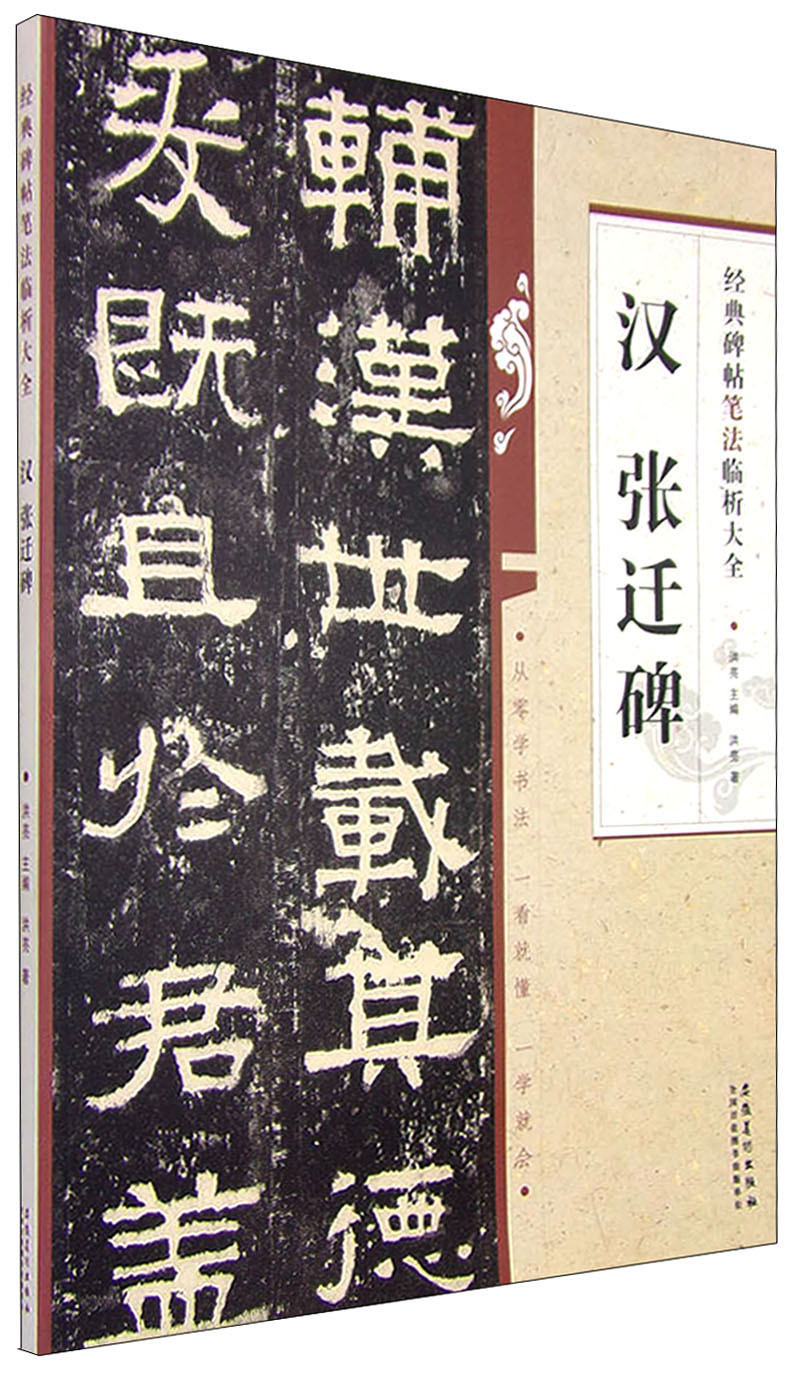 经典碑帖笔法临析大全 汉 张迁碑 • 洪亮 主编 洪亮 著 安徽美术出版社
輔漢世載其德
爰既且於君盖
经典碑帖笔法临析大全
• 洪亮 主编 洪亮 著
汉 张迁碑
• 从零学书法 一看就懂 一学就会 •
安徽美术出版社
全国百佳图书出版单位